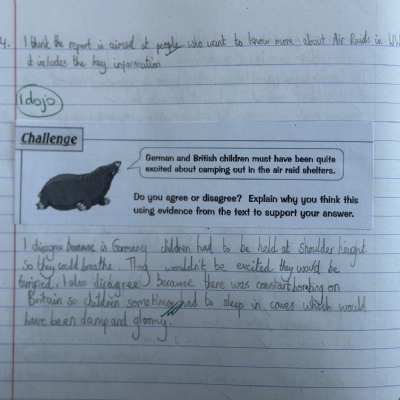 4. I think the report is aimed at people who want to know more about Air Raids in WW
it includes the key information
1 dojo
Challenge
German and British children must have been quite
excited about camping out in the air raid shelters.
Do you agree or disagree? Explain why you think this
using evidence from the text to support your answer.
I disagree because in Germany children had to be held at shoulder height
so they could breathe. They wouldn't be excited they would be
terrified. I also disagree because there was constant bombing on
Britain so children sometimes had to sleep in caves which would
have been damp and gloomy.